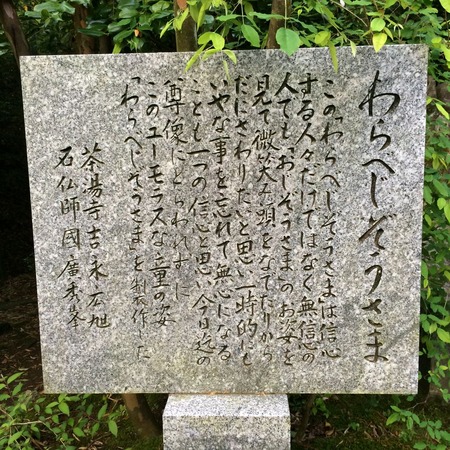 わらべじぞうさま
この「わらべじぞうさま」は信心
する人々だけではなく無信心の
人でも「おじぞうさま」のお姿を
見て微笑み頭をなでたりから
だにさわりたいと思い一時的にも
いやな事を忘れて無心になる
ことも一つの信心と思い今日迄の
尊像にとらわれずに
このユーモラスな童の姿
「わらべじぞうさま」を製作した
茶湯寺吉永石旭
石仏師國廣秀峯